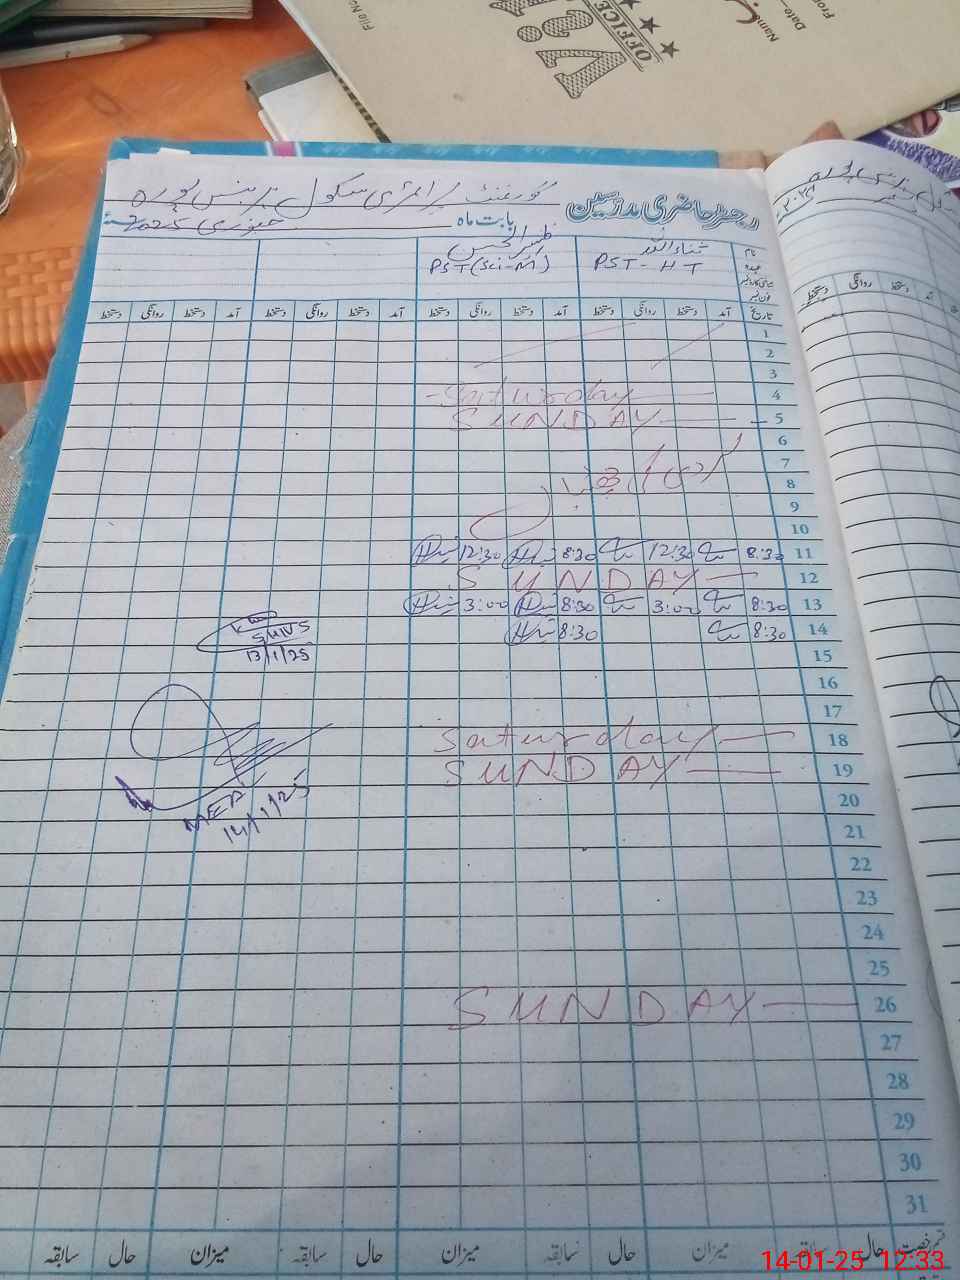 File No
OFFICE
Name
Date
From
گورنمنٹ پرائمری سکول ہربنس پورہ
رجسٹر حاضری مدرسین بابت ماہ جنوری 2025
نام ثناء اللہ
عہدہ PST - HT PST (Sci-M)
فون نمبر
تاریخ آمد دستخط روانگی دستخط آمد دستخط روانگی دستخط آمد دستخط روانگی دستخط آمد دستخط روانگی دستخط
1
2
3
4 Saturday
5 SUNDAY
6
7
8
9
10
11 8:30 12:30 8:30 12:30
12 SUNDAY
13 8:30 3:00 8:30 3:00
14 8:30 8:30
15
16
17
18 Saturday
19 SUNDAY
20
21
22
23
24
25
26 SUNDAY
27
28
29
30
31
13/1/25
MEA
14/1/25
حال سابقہ میزان حال سابقہ میزان حال سابقہ میزان حال سابقہ
دستخط روانگی دستخط آمد
14-01-25 12:33